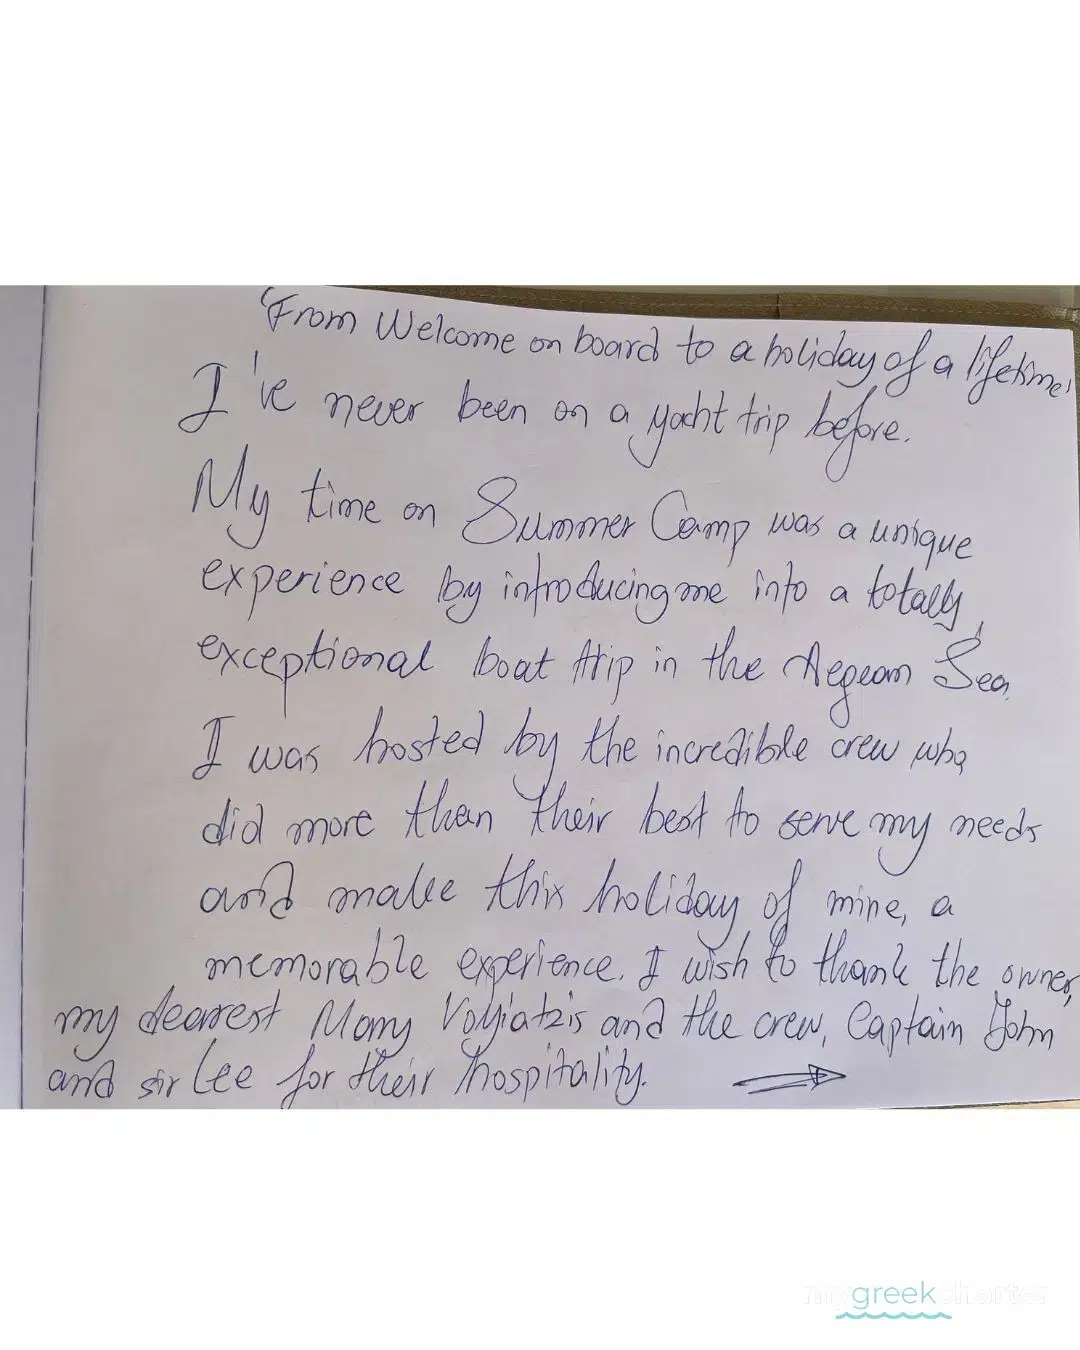 "From Welcome on board to a holiday of a lifetime"
I've never been on a yacht trip before.
My time on Summer Camp was a unique
experience by introducing me into a totally
exceptional boat trip in the Aegean Sea.
I was hosted by the incredible crew who
did more than their best to serve my needs
and make this holiday of mine, a
memorable experience. I wish to thank the owner,
my dearest Mary Voyiatzis and the crew, Captain John
and sir Lee for their hospitality.
mygreekcharter